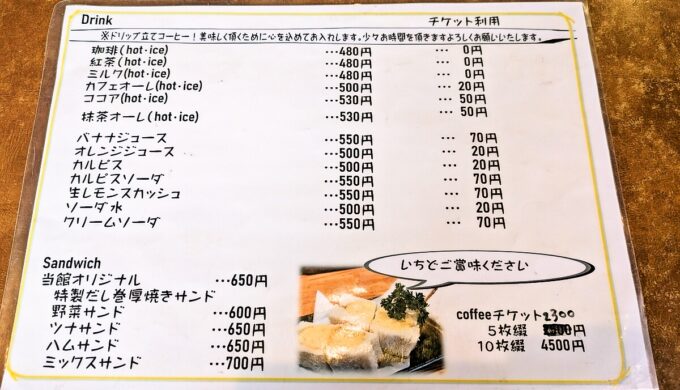 Drink チケット利用
※ドリップ立てコーヒー！美味しく頂くために心を込めてお入れします。少々お時間を頂きますよろしくお願いいたします。
珈琲(hot・ice) …480円 … 0円
紅茶(hot・ice) …480円 … 0円
ミルク(hot・ice) …480円 … 0円
カフェオーレ(hot・ice) …500円 … 20円
ココア(hot・ice) …530円 … 50円
抹茶オーレ(hot・ice) …530円 … 50円
バナナジュース …550円 … 70円
オレンジジュース …500円 … 20円
カルピス …500円 … 20円
カルピスソーダ …550円 … 70円
生レモンスカッシュ …550円 … 70円
ソーダ水 …500円 … 20円
クリームソーダ …550円 … 70円
Sandwich
当館オリジナル …650円
特製だし巻厚焼きサンド
野菜サンド …600円
ツナサンド …650円
ハムサンド …650円
ミックスサンド …700円
いちどご賞味ください
coffeeチケット2300
5枚綴 円
10枚綴 4500円